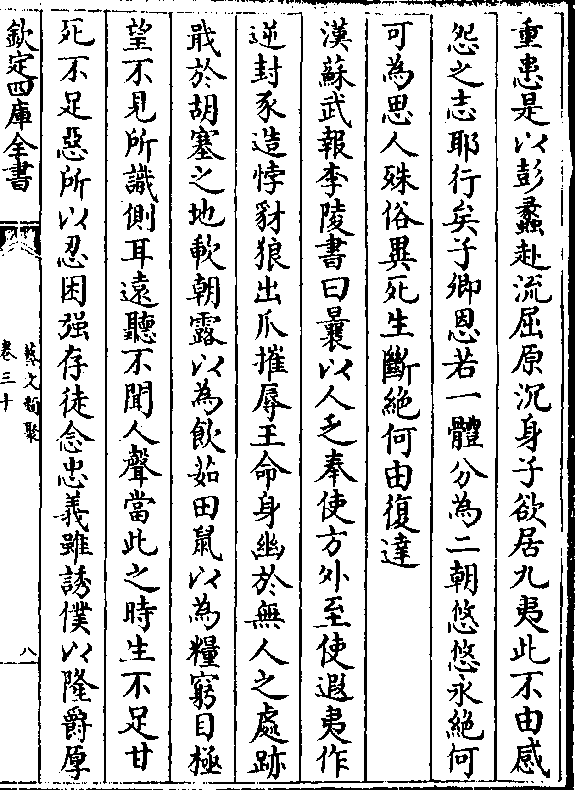 重患是以彭蠡赴流屈原沉身子欲居九夷此不由感
怨之志耶行矣子卿恩若一體分為二朝悠悠永絕何
可為思人殊俗異死生斷絕何由復達
漢蘇武報李陵書曰曩以人乏奉使方外至使遐夷作
逆封豕造悖豺狼出爪摧辱王命身幽於無人之處跡
戢於胡塞之地歃朝露以為飲茹田鼠以為糧窮目極
望不見所識側耳遠聽不聞人聲當此之時生不足甘
死不足惡所以忍困强存徒念忠義雖誘僕以隆爵厚
欽定四庫全書
藝文類聚
卷三十
八